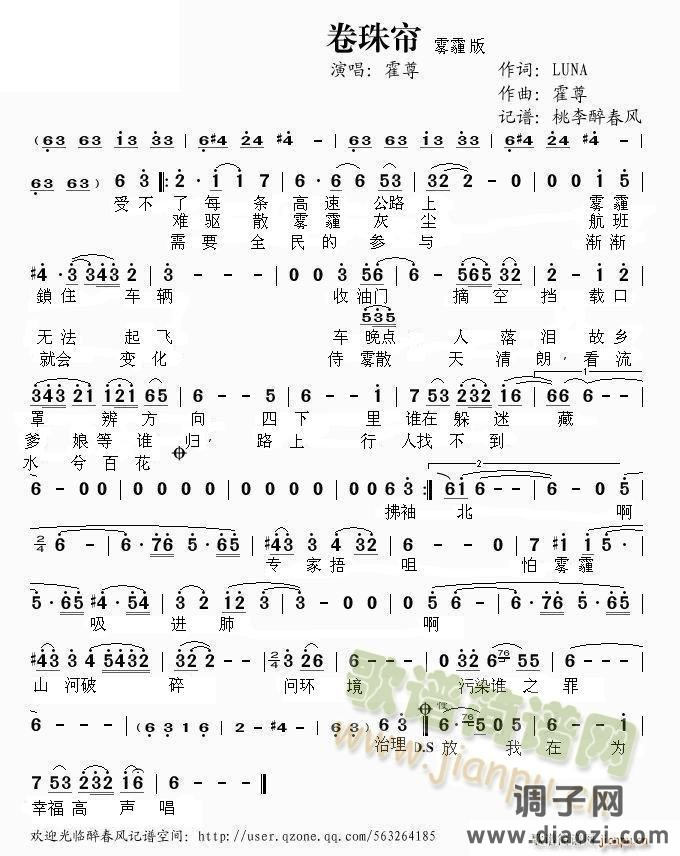 卷珠帘 雾霾版
演唱：霍尊 作词：LUNA
作曲：霍尊
记谱：桃李醉春风
(63 63 i3 33 | 6#4 24 #4 - | 63 63 i3 33 | 6#4 24 #4 - |
63 63) 6 3 ‖: 2· i i 7 | 6· 6 6 53 | 32 2 - 0 | 0 0 i 5 |
受不了每条高速公路上 雾霾
难驱散雾霾灰尘 航班
需要全民的参与 渐渐
#4· 3 3 4 3 2 | 3 - - - | 0 0 3 56 | 6· 5 6 5 32 | 2 - i 2 |
鎖住车辆 收油门 摘空挡 载口
535
无法起飞 车晚点 人落泪故乡
就会变化 侍雾散 天清朗，看流
343 21 121 65 | 6 - - 5 | 6 - - - | 7 53 232 i6 | 66 6 - - |
罩辨方向四下里谁在躲迷藏
爹娘等谁归，路上行人找不到
水兮百花
6 - 0 0 | 0 0 0 0 | 0 0 0 0 | 0 0 63 :‖ 6i 6 - - | 6 - 0 5 |
拂袖 北 啊
2/4 6 - | 6· 76 5· 65 | #43 3 4 32 | 6 - - 0 | 7 #i i 5 |
专家捂咀 怕雾霾
5· 65 #4· 54 | 3 0 i2 3 | 2 - - - | 6 - - - | 6· 76 5· 65 |
吸进肺 啊
#43 3 4 5432 | 3 - - - | 2/4 3 26 | 6 - - - | 0 32 6 55 | 6 - - - |
山河破碎 问环境 污染谁之罪
6 - - - | (63 i6 | 2 - #4 - | 63) 63 ‖ 6· 5 05 | 6 - - i |
治理 D.S 放我在为
7 53 232 i6 | 6 - - - ‖
幸福高声唱
欢迎光临醉春风记谱空间：http://user.qzone.qq.com/563264185
歌谱简谱网
www.jianpu.cn
调子网
www.diaozi.com